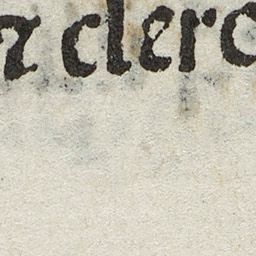 ⁊ clero